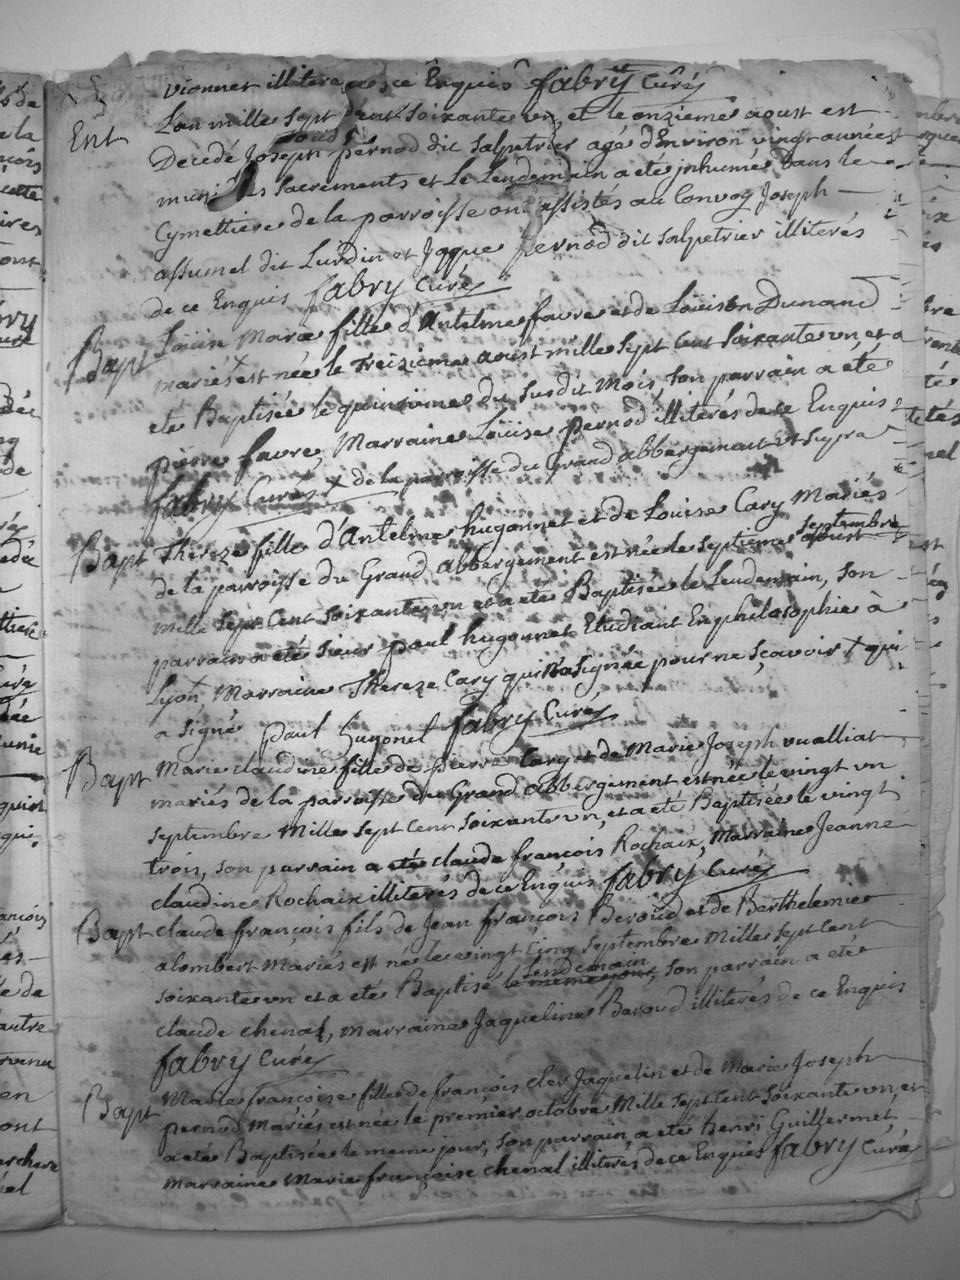 vionnet illiterés de ce Enquis fabry Curé
Ent L'an mille sept Cent Soixante un, et le onzieme aoust est
Decedé Joseph pernod dit Salpetrier agé d'Environ vingt années
muni des Sacrements et Le Lendemain a eté jnhumé dans le
Cymettiere de la parroisse ont assistés au Convoy Joseph
assumel dit Lurdin et Jaque pernod dit Salpetrier illiterés
de ce Enquis fabry Curé
Bapt Loüise Marie fille d'Antelme favre et de Loüison Dunand
mariés x est née le Treizieme aoust mille Sept Cent Soixante un, et a
eté Baptisée le quinzieme du Susdit Mois, Son parrain a eté
pierre favre, Marraine Loüise pernod illiterés de ce Enquis
fabry Curé x de la parroisse du Grand abbergement ut Supra
Bapt Thereze fille d'Antelme hugonnet et de Louise Cary Mariés
de la parroisse du Grand abbergement est née le Septieme aoust Septembre
mille Sept Cent Soixante un et a eté Baptisée le Lendemain, Son
parrain a eté Sieur paul hugonnet Etudiant En philosophie à
Lyon x, Marraine Thereze Cary qui n'a signée pour ne sçavoir x qui
a signé Paul hugonet fabry Curé
Bapt Marie claudine fille de pierre Cary et de Marie Joseph vualliat
mariés de la parroisse du Grand abbergement est née le vingt un
Septembre Mille Sept Cent Soixante un, et a eté Baptisée le vingt
trois, Son parrain a eté claude françois Rochaix, Marraine Jeanne
claudine Rochaix illiterés de ce Enquis fabry Curé
Bapt claude françois fils de Jean françois Beroud et de Berthelemie
alombert Mariés est né le vingt Cinq Septembre Mille Sept Cent
Soixante un et a eté Baptisé le meme jour lendemain, Son parrain a eté
claude chenal, marraine Jaqueline Beroud illiterés de ce Enquis
fabry Curé
Bapt Marie francoise fille de françois cler Jaquelin et de Marie Joseph
pernod Mariés est née le premier octobre Mille Sept Cent Soixante un, et
a eté Baptisée le meme jour, Son parrain a eté henri Guillermet
marraine Marie françoise chenal illiterés de ce Enquis fabry Curé